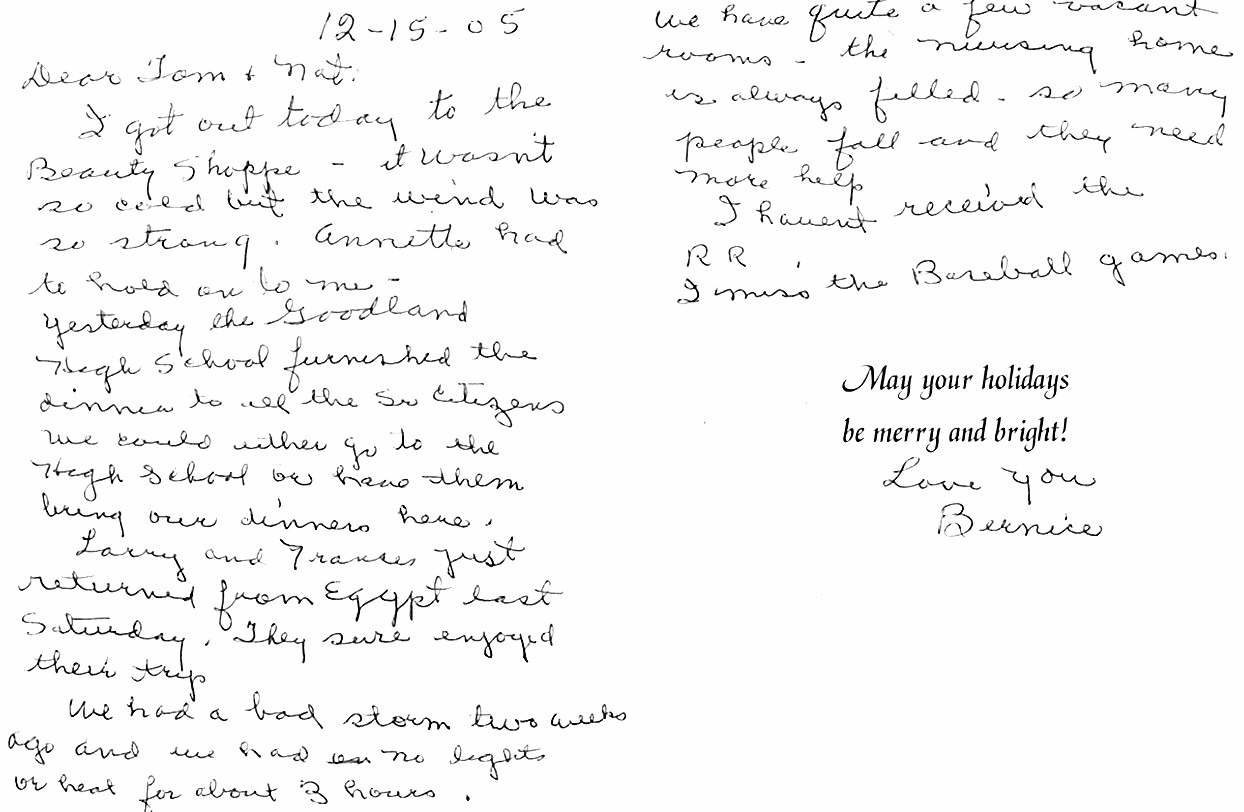 12-15-05
Dear Tom & Nat:
I got out today to the
Beauty Shoppe - it wasn't
so cold but the wind was
so strong. Annette had
to hold on to me -
Yesterday the Goodland
High School furnished the
dinner to all the Sr Citizens
We could either go to the
High School or have them
bring our dinners here.
Larry and Franses just
returned from Egypt last
Saturday. They sure enjoyed
their trip
We had a bad storm two weeks
ago and we had no lights
or heat for about 3 hours.
We have quite a few vacant
rooms - the nursing home
is always filled - so many
people fall and they need
more help
I havent received the
RR
I miss the Baseball games.
May your holidays
be merry and bright!
Love you
Bernice